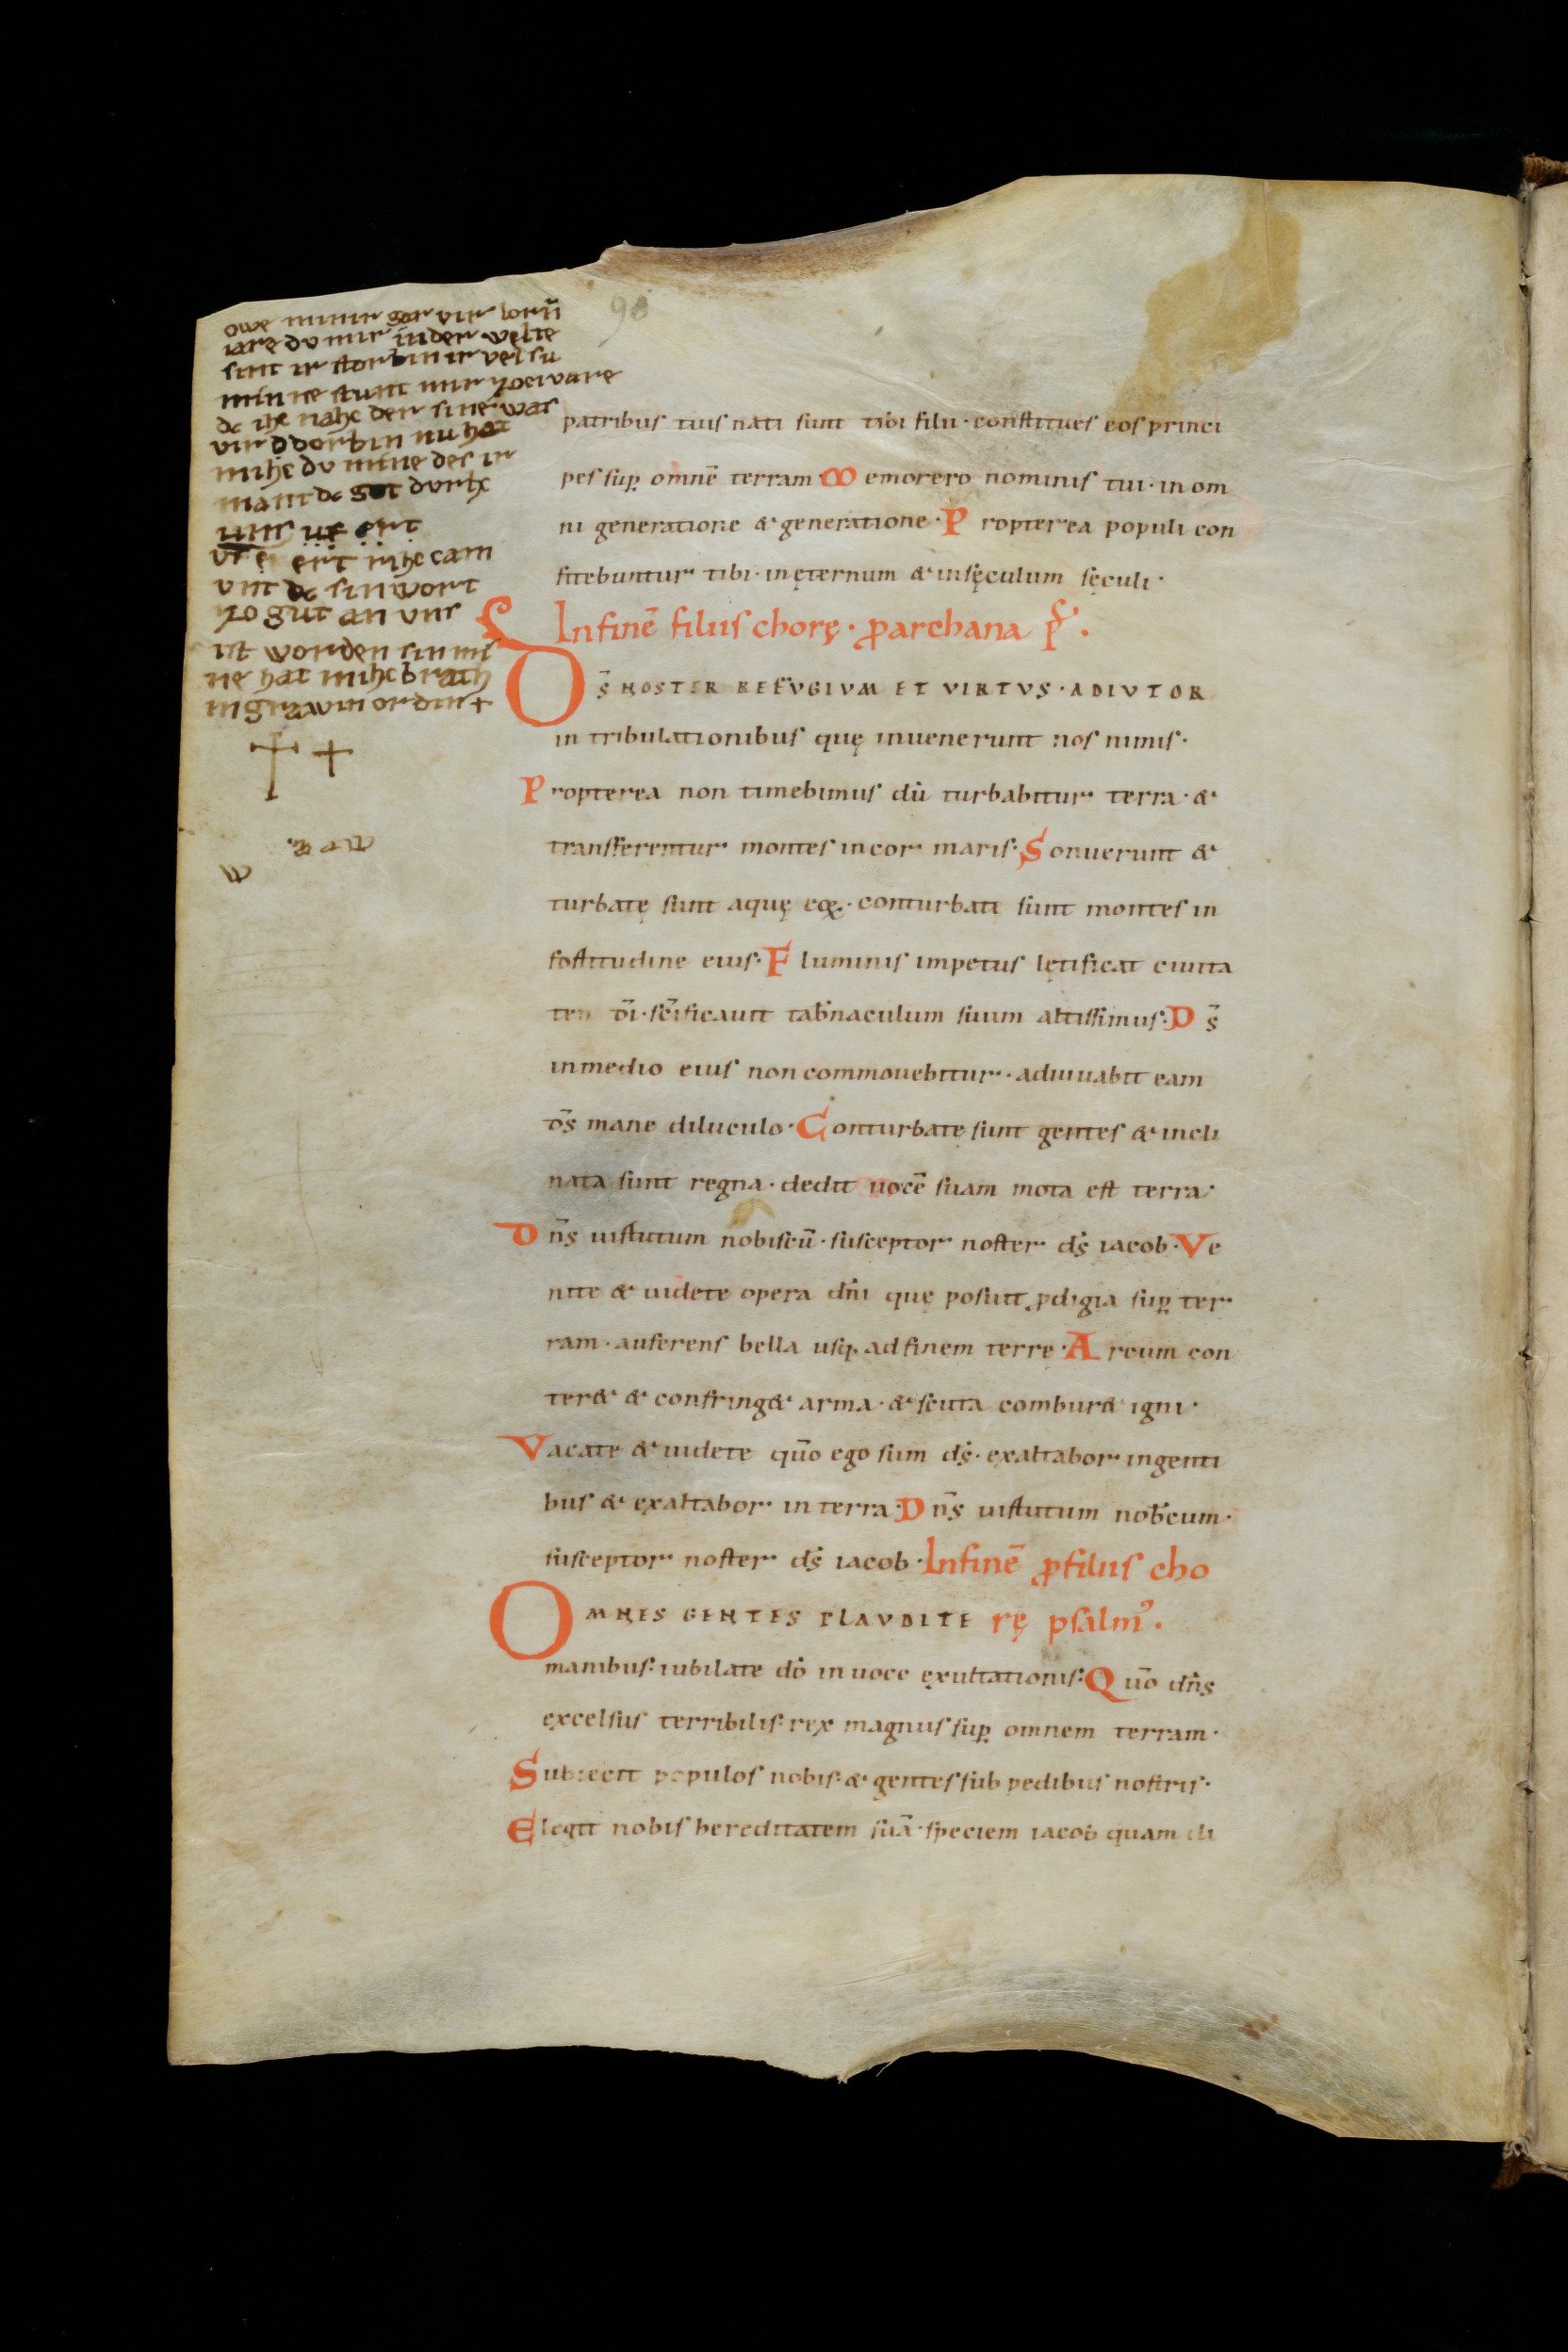 owe minir gar vir lorn̄
iare dv mir in der welte
sint ir storbin ir vel su
minne stunt mir zoe ware
dc ihc nahc der sine was
vir ddorbin nu hat
mihc dv mine des ir
mant dc got durhc
uns
vns ert inhc cam
vnt dc sin wort
zo gut an vns
ist worden sin mi
ne hat mihc brath
in grawin ordin +
98
patribus tuis nati sunt tibi filii · constitues eos princi
pes sup̱ omnē terram · Memorero nominis tui · in om
ni generatione & generatione · Propterea populi con
fitebuntur tibi · in ęternum & in sęculum sęculi ·
In finē filiis chorę · ꝓ archana ps̄ ·
Ds̄ NOSTER REFVGIVM ET VIRTVS · ADIVTOR
in tribulationibus quę inuenerunt nos nimis ·
Propterea non timebimus dū turbabitur terra · &
transferentur montes in cor maris · Sonuerunt &
turbatę sunt aquę eoꝝ · conturbati sunt montes in
fortitudine eius · Fluminis impetus lętificat ciuita
tem dī · sc̄ificauit tab̄naculum suum altissimus · Ds̄
in medio eius non commouebitur · adiuuabit eam
ds̄ mane diluculo · Conturbate sunt gentes & incli
nata sunt regna · dedit uocē suam mota est terra ·
Dn̄s uirtutum nobiscū · susceptor noster ds̄ iacob · Ve
nite & uidete opera dn̄i quę posuit ꝓdigia sup̱ ter
ram · auferens bella usq; ad finem terre · Arcum con
ter& & confring& arma · & scuta combur& igni ·
Vacate & uidete qūo ego sum ds̄ · exaltabor in genti
bus & exaltabor in terra · Dn̄s uirtutum nob̄cum ·
susceptor noster ds̄ iacob · In finē ꝓ filiis cho
OMNES GENTES PLAVDITE rę psalmꝰ ·
manibus : iubilate dō in uoce exultationis : Qūo dn̄s
excelsus terribilis : rex magnus sup̱ omnem terram ·
Subiecit populos nobis : & gentes sub pedibus nostris ·
Elegit nobis hereditatem suā · speciem iacob quam di